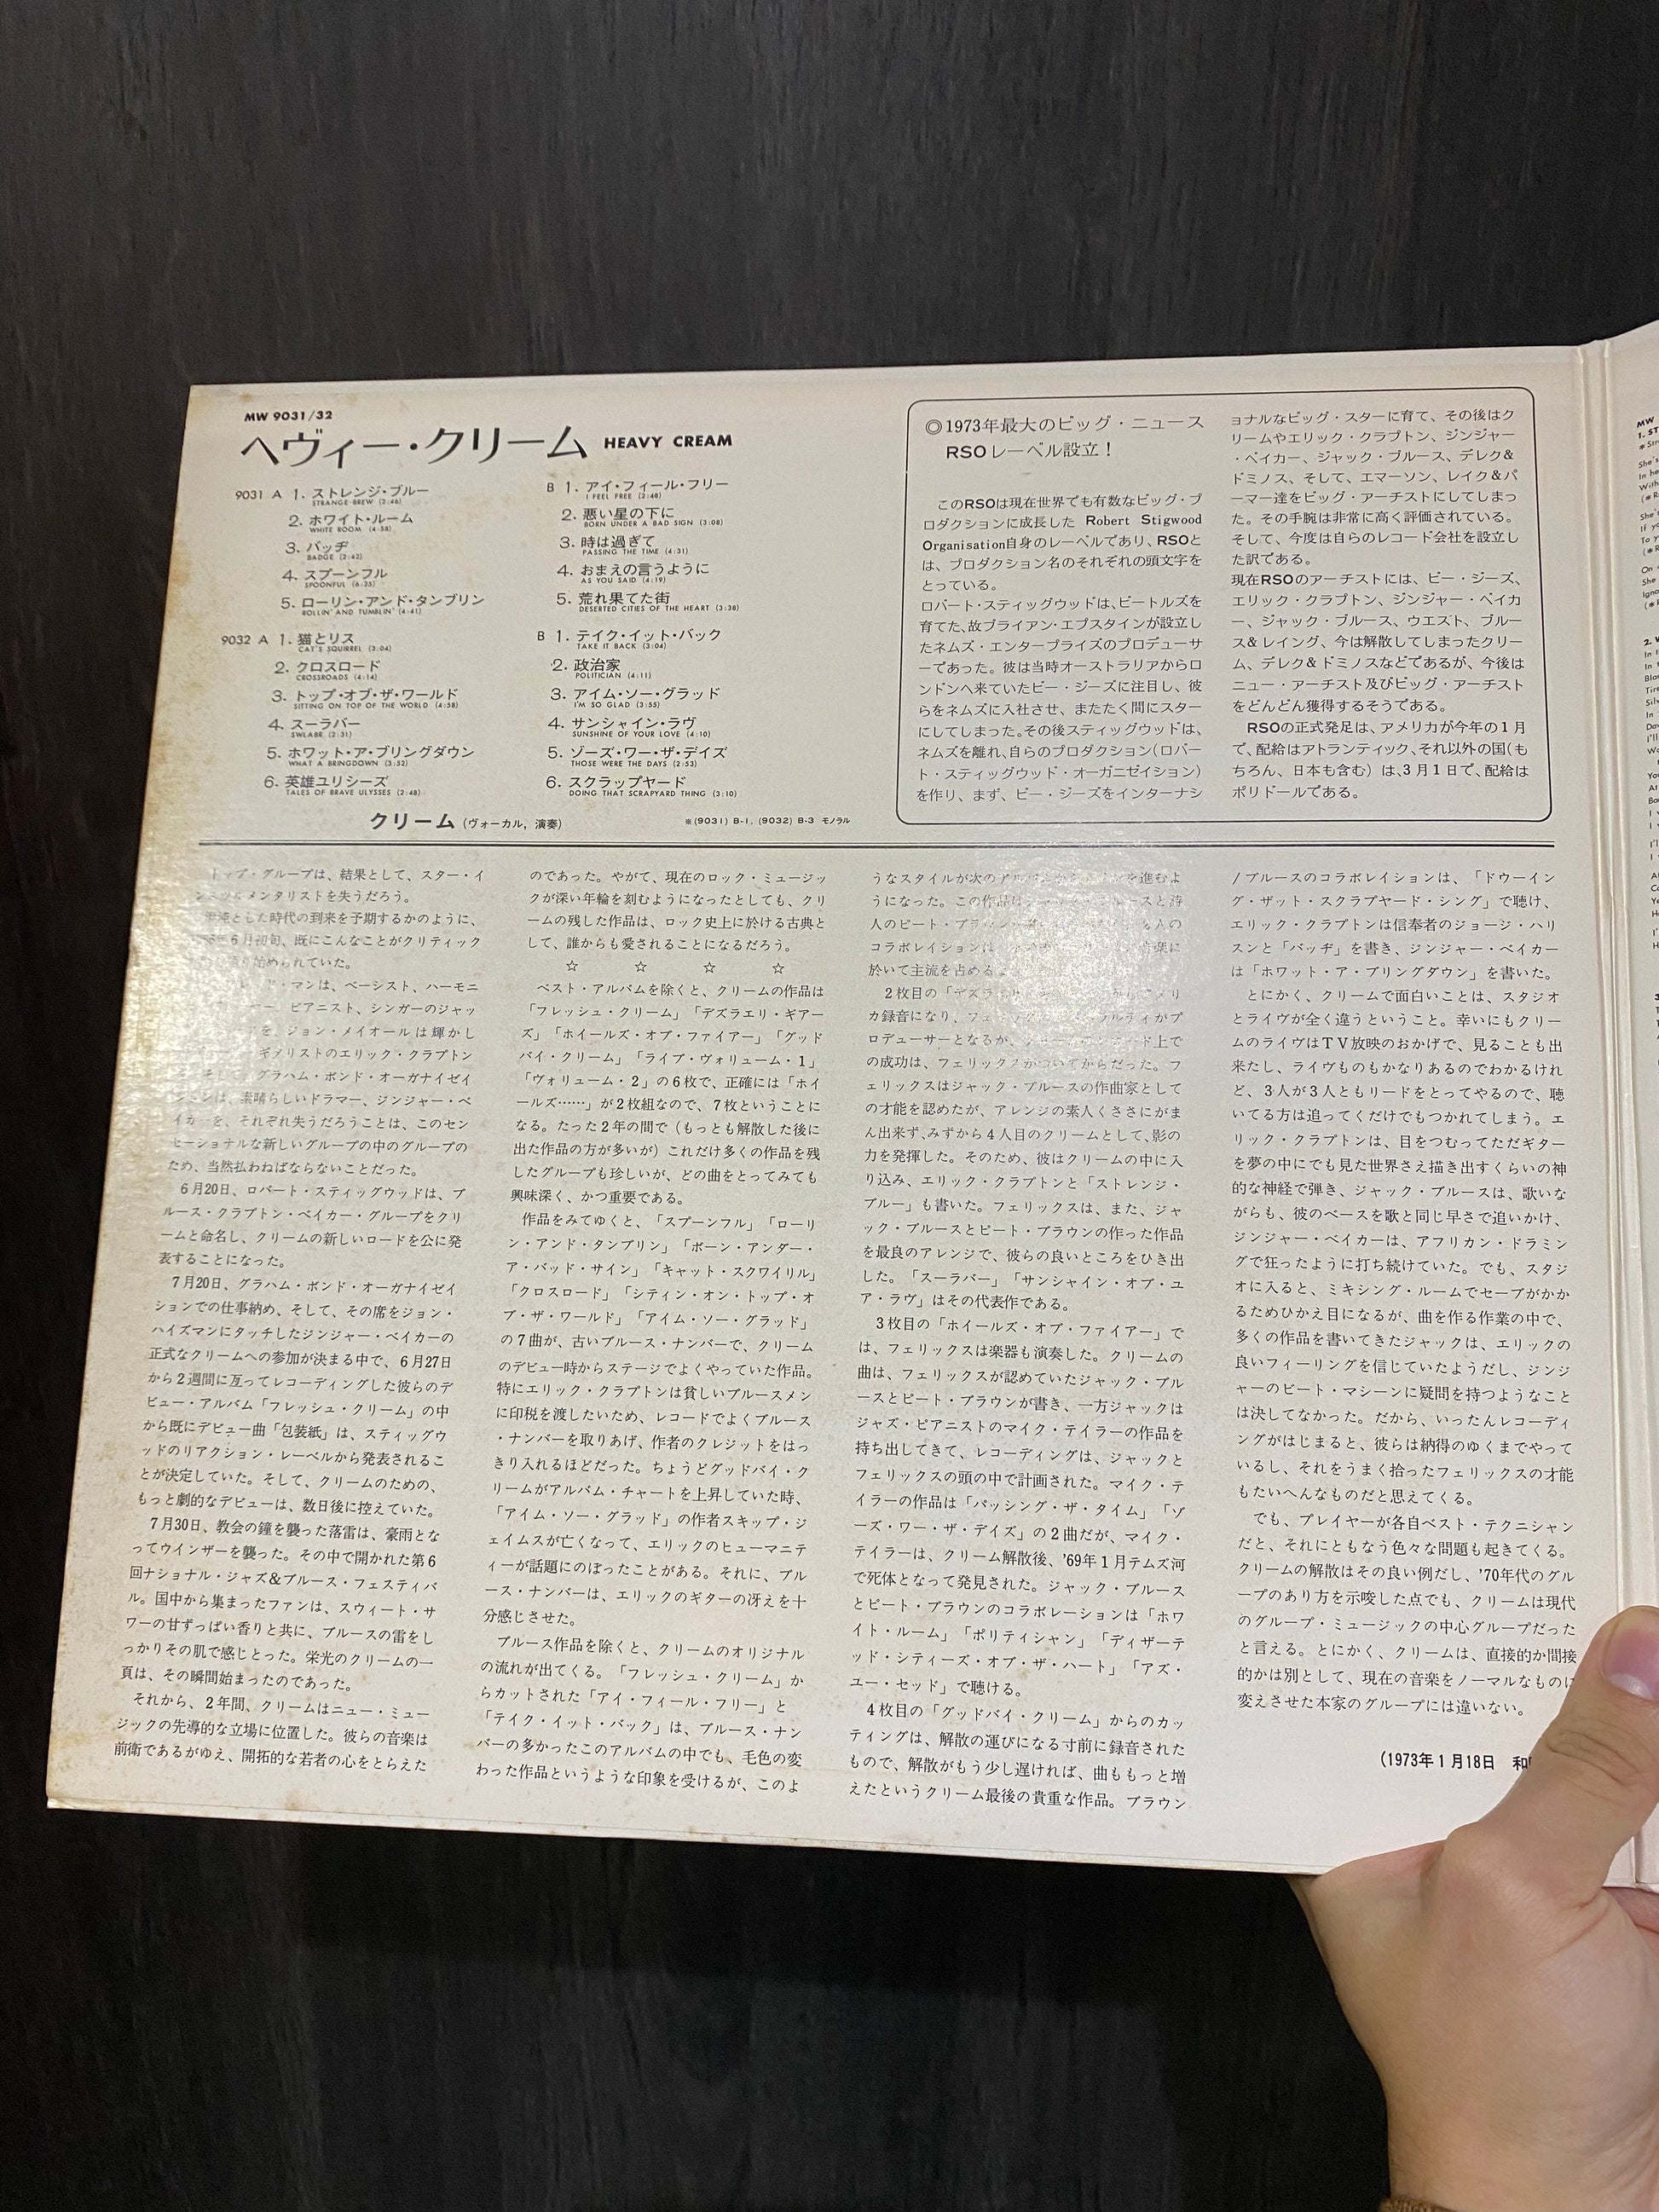 MW 9031/32
ヘヴィー・クリーム HEAVY CREAM
9031 A 1. ストレンジ・ブルー
STRANGE BREW (2:46)
2. ホワイト・ルーム
WHITE ROOM (4:58)
3. バッヂ
BADGE (2:42)
4. スプーンフル
SPOONFUL (6:25)
5. ローリン・アンド・タンブリン
ROLLIN' AND TUMBLIN' (4:41)
B 1. アイ・フィール・フリー
I FEEL FREE (2:48)
2. 悪い星の下に
BORN UNDER A BAD SIGN (3:08)
3. 時は過ぎて
PASSING THE TIME (4:31)
4. おまえの言うように
AS YOU SAID (4:19)
5. 荒れ果てた街
DESERTED CITIES OF THE HEART (3:38)
9032 A 1. 猫とリス
CAT'S SQUIRREL (3:04)
2. クロスロード
CROSSROADS (4:14)
3. トップ・オブ・ザ・ワールド
SITTING ON TOP OF THE WORLD (4:58)
4. スーラバー
SWLABR (2:31)
5. ホワット・ア・ブリングダウン
WHAT A BRINGDOWN (3:52)
6. 英雄ユリシーズ
TALES OF BRAVE ULYSSES (2:48)
B 1. テイク・イット・バック
TAKE IT BACK (3:04)
2. 政治家
POLITICIAN (4:11)
3. アイム・ソー・グラッド
I'M SO GLAD (3:55)
4. サンシャイン・ラヴ
SUNSHINE OF YOUR LOVE (4:10)
5. ゾーズ・ワー・ザ・デイズ
THOSE WERE THE DAYS (2:53)
6. スクラップヤード
DOING THAT SCRAPYARD THING (3:10)
クリーム (ヴォーカル, 演奏)
※(9031) B-1, (9032) B-3 モノラル
◎1973年最大のビッグ・ニュース
RSOレーベル設立！
このRSOは現在世界でも有数なビッグ・プ
ロダクションに成長した Robert Stigwood
Organisation自身のレーベルであり、RSOと
は、プロダクション名のそれぞれの頭文字を
とっている。
ロバート・スティッグウッドは、ビートルズを
育てた、故ブライアン・エプスタインが設立し
たネムズ・エンタープライズのプロデューサ
ーであった。彼は当時オーストラリアからロ
ンドンへ来ていたビー・ジーズに注目し、彼
らをネムズに入社させ、またたく間にスター
にしてしまった。その後スティッグウッドは、
ネムズを離れ、自らのプロダクション(ロバー
ト・スティッグウッド・オーガニゼイション)
を作り、まず、ビー・ジーズをインターナシ
ョナルなビッグ・スターに育て、その後はク
リームやエリック・クラプトン、ジンジャー
・ベイカー、ジャック・ブルース、デレク&
ドミノス、そして、エマーソン、レイク&パ
ーマー達をビッグ・アーチストにしてしまっ
た。その手腕は非常に高く評価されている。
そして、今度は自らのレコード会社を設立し
た訳である。
現在RSOのアーチストには、ビー・ジーズ、
エリック・クラプトン、ジンジャー・ベイカ
ー、ジャック・ブルース、ウエスト、ブルー
ス&レイング、今は解散してしまったクリー
ム、デレク&ドミノスなどであるが、今後は
ニュー・アーチスト及びビッグ・アーチスト
をどんどん獲得するそうである。
RSOの正式発足は、アメリカが今年の1月
で、配給はアトランティック、それ以外の国(も
ちろん、日本も含む) は、3月1日で、配給は
ポリドールである。
トップ・グループは、結果として、スター・イ
ンスツルメンタリストを失うだろう。
とした時代の到来を予期するかのように、
6月初旬、既にこんなことがクリティック
り始められていた。
ド・マンは、ベーシスト、ハーモニ
ピアニスト、シンガーのジャッ
を、ジョン・メイオールは輝かし
ギタリストのエリック・クラプトン
グラハム・ボンド・オーガナイゼイ
ションは、素晴らしいドラマー、ジンジャー・ベ
イカーを、それぞれ失うだろうことは、このセン
セーショナルな新しいグループの中のグループの
ため、当然払わねばならないことだった。
6月20日、ロバート・スティッグウッドは、ブ
ルース・クラプトン・ベイカー・グループをクリ
ームと命名し、クリームの新しいロードを公に発
表することになった。
7月20日、グラハム・ボンド・オーガナイゼイ
ションでの仕事納め、そして、その席をジョン・
ハイズマンにタッチしたジンジャー・ベイカーの
正式なクリームへの参加が決まる中で、6月27日
から2週間に亙ってレコーディングした彼らのデ
ビュー・アルバム「フレッシュ・クリーム」の中
から既にデビュー曲「包装紙」は、スティッグウ
ッドのリアクション・レーベルから発表されるこ
とが決定していた。そして、クリームのための、
もっと劇的なデビューは、数日後に控えていた。
7月30日、教会の鐘を襲った落雷は、豪雨とな
ってウインザーを襲った。その中で開かれた第6
回ナショナル・ジャズ&ブルース・フェスティバ
ル。国中から集まったファンは、スウィート・サ
ワーの甘ずっぱい香りと共に、ブルースの雷をし
っかりその肌で感じとった。栄光のクリームの一
頁は、その瞬間始まったのであった。
それから、2年間、クリームはニュー・ミュー
ジックの先導的な立場に位置した。彼らの音楽は
前衛であるがゆえ、開拓的な若者の心をとらえた
のであった。やがて、現在のロック・ミュージッ
クが深い年輪を刻むようになったとしても、クリ
ームの残した作品は、ロック史上に於ける古典と
して、誰からも愛されることになるだろう。
☆ ☆ ☆ ☆
ベスト・アルバムを除くと、クリームの作品は
「フレッシュ・クリーム」「デズラエリ・ギアー
ズ」「ホイールズ・オブ・ファイアー」「グッド
バイ・クリーム」「ライブ・ヴォリューム・1」
「ヴォリューム・2」の6枚で、正確には「ホイ
ールズ……」が2枚組なので、7枚ということに
なる。たった2年の間で (もっとも解散した後に
出た作品の方が多いが) これだけ多くの作品を残
したグループも珍しいが、どの曲をとってみても
興味深く、かつ重要である。
作品をみてゆくと、「スプーンフル」「ローリ
ン・アンド・タンブリン」「ボーン・アンダー・
ア・バッド・サイン」「キャット・スクワイリル」
「クロスロード」「シティン・オン・トップ・オ
ブ・ザ・ワールド」「アイム・ソー・グラッド」
の7曲が、古いブルース・ナンバーで、クリーム
のデビュー時からステージでよくやっていた作品。
特にエリック・クラプトンは貧しいブルースメン
に印税を渡したいため、レコードでよくブルース
・ナンバーを取りあげ、作者のクレジットをはっ
きり入れるほどだった。ちょうどグッドバイ・ク
リームがアルバム・チャートを上昇していた時、
「アイム・ソー・グラッド」の作者スキップ・ジ
ェイムスが亡くなって、エリックのヒューマニテ
ィーが話題にのぼったことがある。それに、ブル
ース・ナンバーは、エリックのギターの冴えを十
分感じさせた。
ブルース作品を除くと、クリームのオリジナル
の流れが出てくる。「フレッシュ・クリーム」か
らカットされた「アイ・フィール・フリー」と
「テイク・イット・バック」は、ブルース・ナン
バーの多かったこのアルバムの中でも、毛色の変
わった作品というような印象を受けるが、このよ
うなスタイルが次のアル を進むよ
うになった。この作品は と詩
人のピート・ブラウン
コラボレイションは に
於いて主流を占める
2枚目の「デズラエリ メリ
カ録音になり、フェ がプ
ロデューサーとなるが、 ド上で
の成功は、フェリックスがついてからだった。フ
ェリックスはジャック・ブルースの作曲家として
の才能を認めたが、アレンジの素人くささにがま
ん出来ず、みずから4人目のクリームとして、影の
力を発揮した。そのため、彼はクリームの中に入
り込み、エリック・クラプトンと「ストレンジ・
ブルー」も書いた。フェリックスは、また、ジャ
ック・ブルースとピート・ブラウンの作った作品
を最良のアレンジで、彼らの良いところをひき出
した。「スーラバー」「サンシャイン・オブ・ユ
ア・ラヴ」はその代表作である。
3枚目の「ホイールズ・オブ・ファイアー」で
は、フェリックスは楽器も演奏した。クリームの
曲は、フェリックスが認めていたジャック・ブル
ースとピート・ブラウンが書き、一方ジャックは
ジャズ・ピアニストのマイク・テイラーの作品を
持ち出してきて、レコーディングは、ジャックと
フェリックスの頭の中で計画された。マイク・テ
イラーの作品は「パッシング・ザ・タイム」「ゾ
ーズ・ワー・ザ・デイズ」の2曲だが、マイク・
テイラーは、クリーム解散後、'69年1月テムズ河
で死体となって発見された。ジャック・ブルース
とピート・ブラウンのコラボレーションは「ホワ
イト・ルーム」「ポリティシャン」「ディザーテ
ッド・シティーズ・オブ・ザ・ハート」「アズ・
ユー・セッド」で聴ける。
4枚目の「グッドバイ・クリーム」からのカッ
ティングは、解散の運びになる寸前に録音された
もので、解散がもう少し遅ければ、曲ももっと増
えたというクリーム最後の貴重な作品。ブラウン
/ブルースのコラボレイションは、「ドウーイン
グ・ザット・スクラプヤード・シング」で聴け、
エリック・クラプトンは信奉者のジョージ・ハリ
スンと「バッヂ」を書き、ジンジャー・ベイカー
は「ホワット・ア・ブリングダウン」を書いた。
とにかく、クリームで面白いことは、スタジオ
とライヴが全く違うということ。幸いにもクリー
ムのライヴはTV放映のおかげで、見ることも出
来たし、ライヴものもかなりあるのでわかるけれ
ど、3人が3人ともリードをとってやるので、聴
いてる方は追ってくだけでもつかれてしまう。エ
リック・クラプトンは、目をつむってただギター
を夢の中にでも見た世界さえ描き出すくらいの神
的な神経で弾き、ジャック・ブルースは、歌いな
がらも、彼のベースを歌と同じ早さで追いかけ、
ジンジャー・ベイカーは、アフリカン・ドラミン
グで狂ったように打ち続けていた。でも、スタジ
オに入ると、ミキシング・ルームでセーブがかか
るためひかえ目になるが、曲を作る作業の中で、
多くの作品を書いてきたジャックは、エリックの
良いフィーリングを信じていたようだし、ジンジ
ャーのビート・マシーンに疑問を持つようなこと
は決してなかった。だから、いったんレコーディ
ングがはじまると、彼らは納得のゆくまでやって
いるし、それをうまく拾ったフェリックスの才能
もたいへんなものだと思えてくる。
でも、プレイヤーが各自ベスト・テクニシャン
だと、それにともなう色々な問題も起きてくる。
クリームの解散はその良い例だし、'70年代のグル
ープのあり方を示唆した点でも、クリームは現代
のグループ・ミュージックの中心グループだった
と言える。とにかく、クリームは、直接的か間接
的かは別として、現在の音楽をノーマルなものに
変えさせた本家のグループには違いない。
(1973年1月18日 和